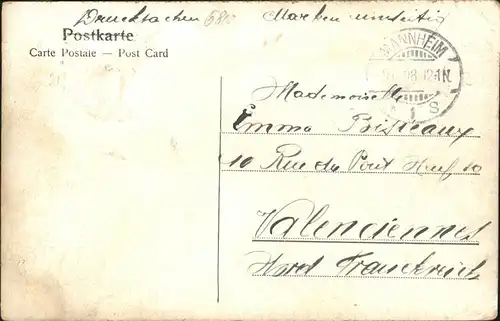 Drucksachen Marken umseitig
Postkarte
Carte Postale — Post Card
MANNHEIM
12-1N.
1 S
Mademoiselle
Emma Bisteaux
10 Rue du Pont Neuf 10
Valenciennes
Nord Frankreich